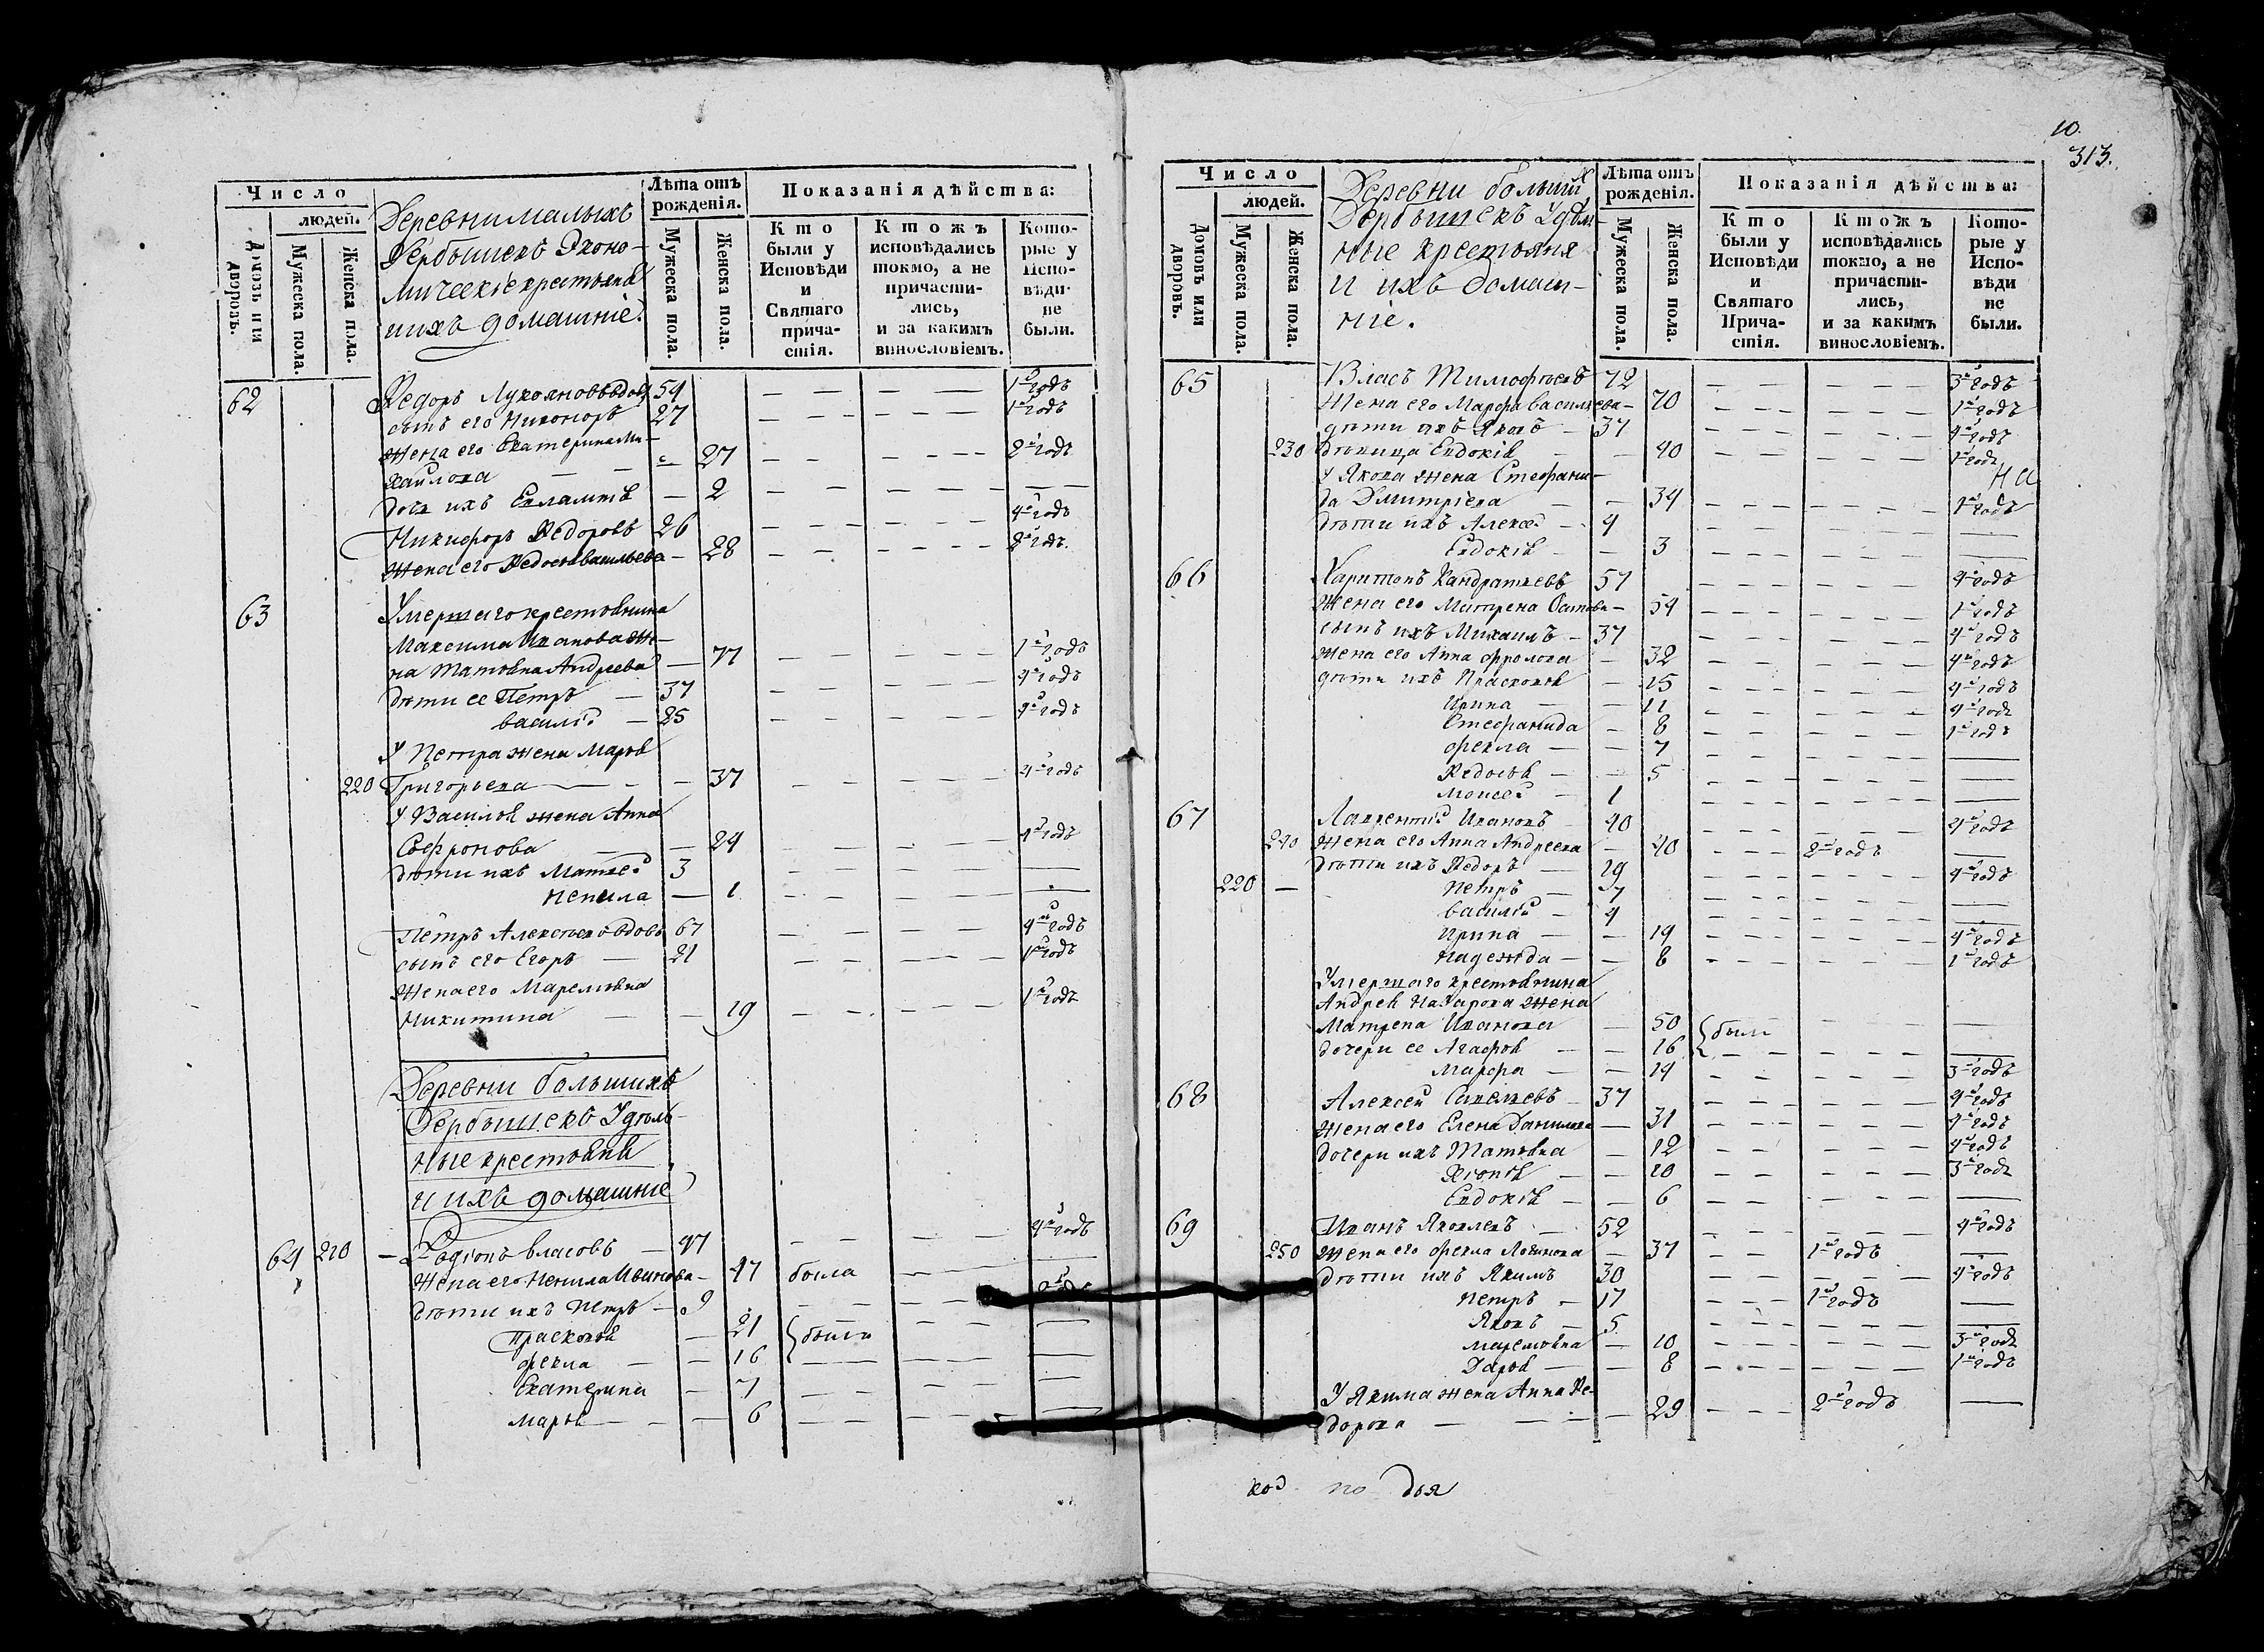 10.
313.
Число
людей.
Домовъ или дворовъ.
Мужеска пола.
Женска пола.
Деревни малыхъ
Дербышекъ Эконо-
мическіе крестьяня
и ихъ домашніе.
Лѣта отъ рожденія.
Мужеска пола.
Женска пола.
Показанія дѣйства:
Кто были у Исповѣди и Святаго причастія.
Ктожъ исповѣдались токмо, а не причастились, и за какимъ винословіемъ.
Которые у Исповѣди не были.
62 Федоръ Лукояновъ вдовъ 54 — — 1й годъ
сынъ его Никоноръ 27 — — 1й годъ
жена его Екатерина Ми-
хайлова — 27 — — 2й годъ
дочь ихъ Евлампія — 2 — — —
Никифоръ Федоровъ 26 — — 4й годъ
жена его Федосья Васильева — 28 — — 2й годъ.
63 Умершаго крестьянина
Максима Иванова же-
на Татьяна Андреева — 77 — — 1й годъ
дѣти ее Петръ — 37 — — 4й годъ
Василій — 25 — — 4й годъ
У Петра жена Марья
220 Григорьева — 37 — — 4й годъ
У Василья жена Анна
Софронова — 24 — — 4й годъ
дѣти ихъ Матвей 3 — — —
Ненила — 1 — — —
Петръ Алексѣевъ вдовъ 67 — — 4й годъ
сынъ его Егоръ — 21 — — 1й годъ
Жена его Маремьяна
Никитина — 19 — — 1й годъ
Деревни большихъ
Дербышекъ Удѣль-
ные крестьяня
и ихъ домашніе
64 210 — Родіонъ Власовъ — 47 — — 4й годъ
Жена его Ненила — 47 была — —
дѣти ихъ Петръ — 9 — —
Прасковья — 21 были — —
Фекла — 16 — — —
Екатерина — 7 — — —
Марья — 6 — — —
Число
людей.
Домовъ или дворовъ.
Мужеска пола.
Женска пола.
Деревни большихъ
Дербышекъ Удѣль-
ные крестьяня
и ихъ домаш-
ніе.
Лѣта отъ рожденія.
Мужеска пола.
Женска пола.
Показанія дѣйства:
Кто были у Исповѣди и Святаго Причастія.
Ктожъ исповѣдались токмо, а не причастились, и за какимъ винословіемъ.
Которые у Исповѣди не были.
65 Власъ Тимофѣевъ 72 — — 3й годъ
Жена его Марфа Васильева — 70 — — 1й годъ
дѣти ихъ Яковъ — 37 — — 4й годъ
230 дѣвица Евдокія — 40 — — 1й годъ
У Якова жена Стефани-
да Дмитріева — 34 — — 1й годъ
дѣти ихъ Алексей — 4 — — —
Евдокія — 3 — — —
66 Харитонъ Кандратьевъ 57 — — 4й годъ
Жена его Матрена — 54 — — 1й годъ
сынъ ихъ Михаилъ — 37 — — 4й годъ
Жена его Анна Фролова — 32 — — 4й годъ
дѣти ихъ Прасковья — 15 — — 4й годъ
Ирина — 11 — — 4й годъ
Стефанида — 8 — — 1й годъ
Фекла — 7 — — —
Федосья — 5 — — —
Моисей — 1 — — —
67 Лаврентій Ивановъ — 40 — — 4й годъ
240 Жена его Анна Андреева — 40 — 2й годъ —
дѣти ихъ Федоръ — 19 — — 4й годъ
220 — Петръ — 7 — — —
Василій — 4 — — —
Ирина — 14 — — 4й годъ
Надежда — 8 — — 1й годъ
Умершаго крестьянина
Андрея Назарова жена
Матрена Иванова — 50 были — —
дочери ее Агафья — 16 — — —
Марфа — 14 — — 3й годъ
68 Алексей Савельевъ — 37 — — 4й годъ
Жена его Елена Данилова — 31 — — 4й годъ
дочери ихъ Татьяна — 12 — — 4й годъ
Хіонія — 10 — — 3й годъ
Евдокія — 6 — — —
69 Иванъ Яковлевъ — 52 — — 4й годъ
250 Жена его Фекла Логинова — 37 — 1й годъ —
дѣти ихъ Якимъ 30 — — 4й годъ
Петръ — 17 — 1й годъ —
Яковъ — 5 — — —
Маремьяна — 10 — — 3й годъ
Дарья — 8 — — 1й годъ
У Якима жена Анна Фе-
дорова — 29 — 2й годъ —
по дья